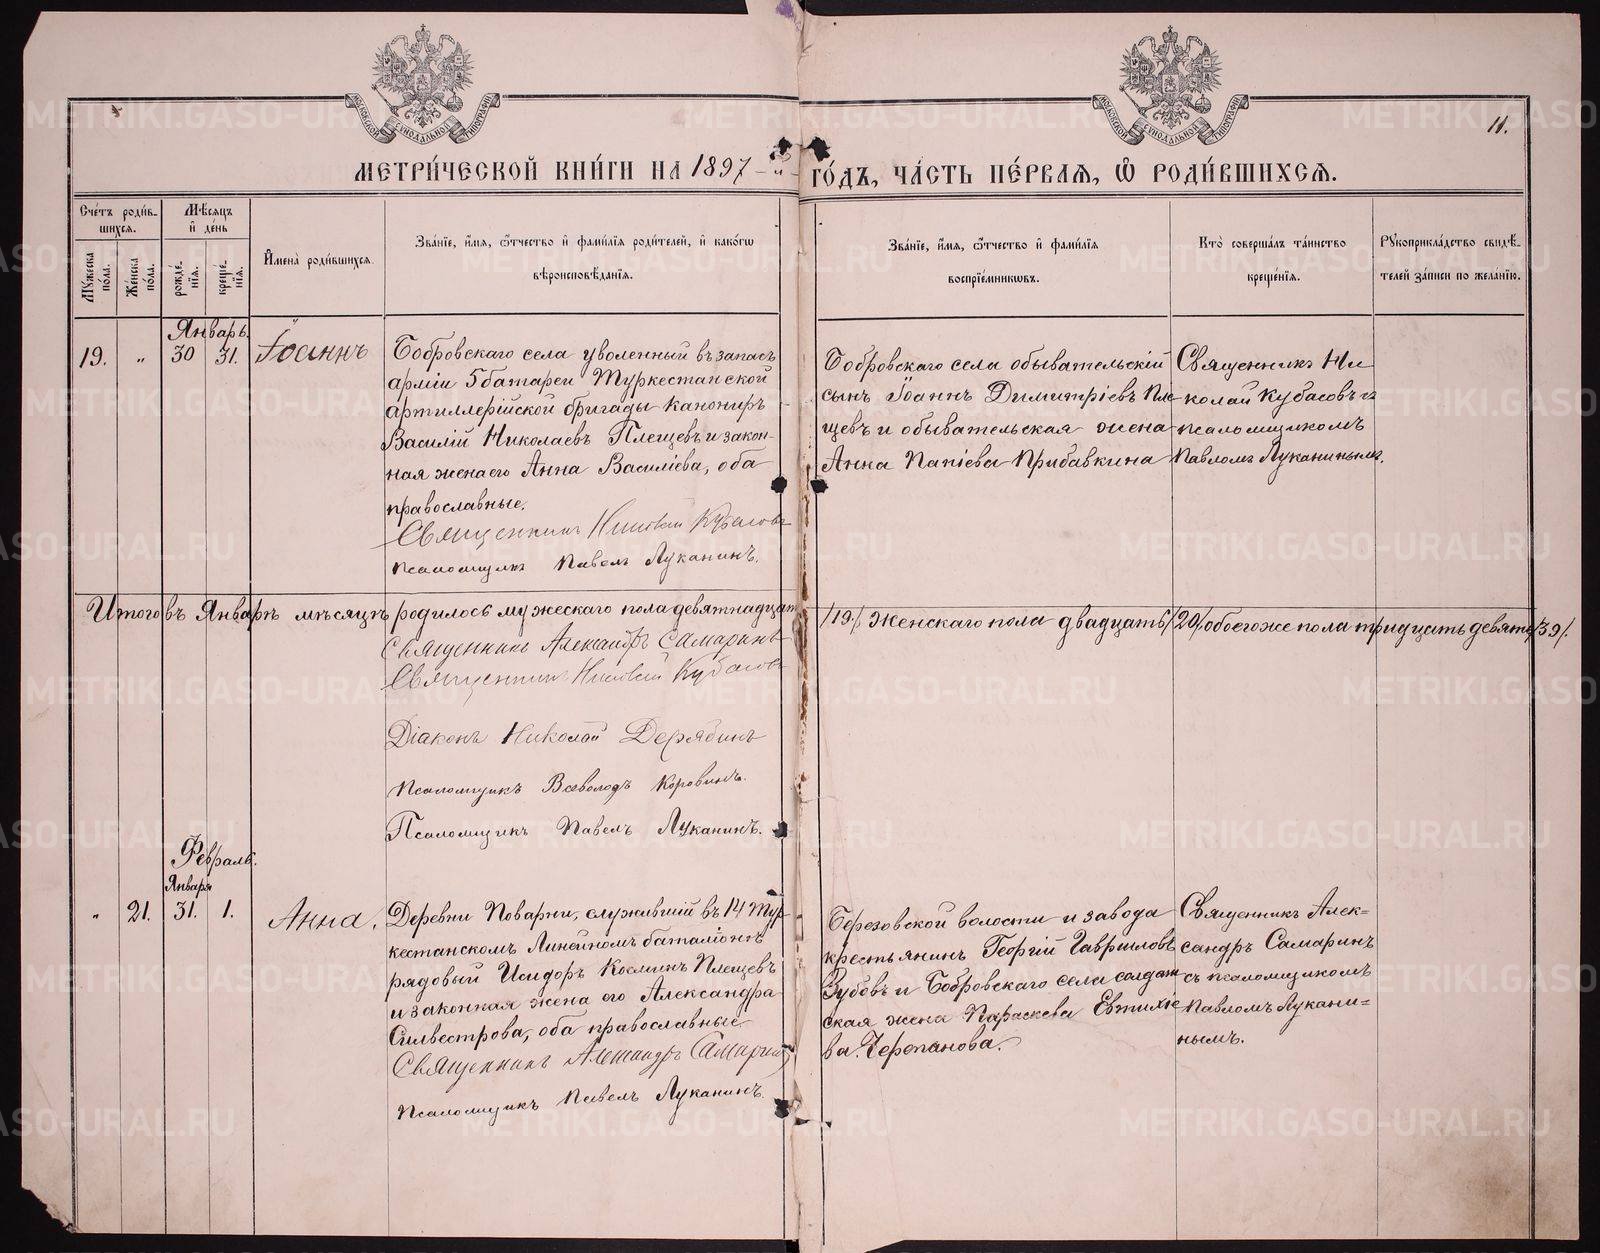 МОСКОВСКОЙ СѴНОДАЛЬНОЙ ТИПОГРАФІИ
МОСКОВСКОЙ СѴНОДАЛЬНОЙ ТИПОГРАФІИ
11.
МЕТРИ́ЧЕСКОЙ КНИ́ГИ НА 1897-й ГО́ДЪ, ЧА́СТЬ ПЕ́РВАѦ, Ѽ РОДИ́ВШИХСѦ.
Сче́тъ роди́в-
шихсѧ.
Мꙋ́жеска по́ла.
Же́нска по́ла.
Мѣ́сѧцъ и҆ де́нь
рожде́нїѧ.
креще́нїѧ.
И҆мена̀ роди́вшихсѧ.
Зва́нїе, и҆́мѧ, ѻ҆́тчество и҆ фами́лїѧ роди́телей, и҆ како́гѡ
вѣроисповѣ́данїѧ.
Зва́нїе, и҆́мѧ, ѻ҆́тчество и҆ фами́лїѧ
воспрїе́мникѡвъ.
Кто̀ соверша́лъ та́инство
креще́нїѧ.
Рꙋкоприкла́дство свидѣ́-
телей за́писи по жела́нїю.
Январь.
19. „ 30 31. Іоаннъ
Бобровскаго села уволенный въ запасъ
арміи 5 батареи Туркестанской
артиллерійской бригады канониръ
Василій Николаевъ Плещевъ и закон-
ная жена его Анна Василіева, оба
православные.
Священникъ Николай Кубасовъ
Псаломщикъ Павелъ Луканинъ.
Бобровскаго села обывательскій
сынъ Іоаннъ Димитріевъ Пле-
щевъ и обывательская жена
Анна Папіева Прибавкина
Священникъ Ни-
колай Кубасовъ съ
псаломщикомъ
Павломъ Луканинымъ.
Итого въ Январѣ мѣсяцѣ родилось мужескаго пола девятнадцать /19/ женскаго пола двадцать /20/ обоего же пола тридцать девять /39/.
Священникъ Александръ Самаринъ
Священникъ Николай Кубасовъ
Діаконъ Николай Дерябинъ
Псаломщикъ Всеволодъ Коровинъ.
Псаломщикъ Павелъ Луканинъ.
Февраль.
Января
„ 21. 31. 1. Анна.
Деревни Поварни, служившій въ 14 Тур-
кестанскомъ Линейномъ баталіонѣ
рядовый Исидоръ Косминъ Плещевъ
и законная жена его Александра
Силвестрова, оба православные
Священникъ Александръ Самаринъ
Псаломщикъ Павелъ Луканинъ.
Березовской волости и завода
крестьянинъ Георгій Гавриловъ
Зубовъ и Бобровскаго села солдат-
ская жена Параскева Евтихіе-
ва Черепанова.
Священникъ Алек-
сандръ Самаринъ
съ псаломщикомъ
Павломъ Лукани-
нымъ.
METRIKI.GASO-URAL.RU